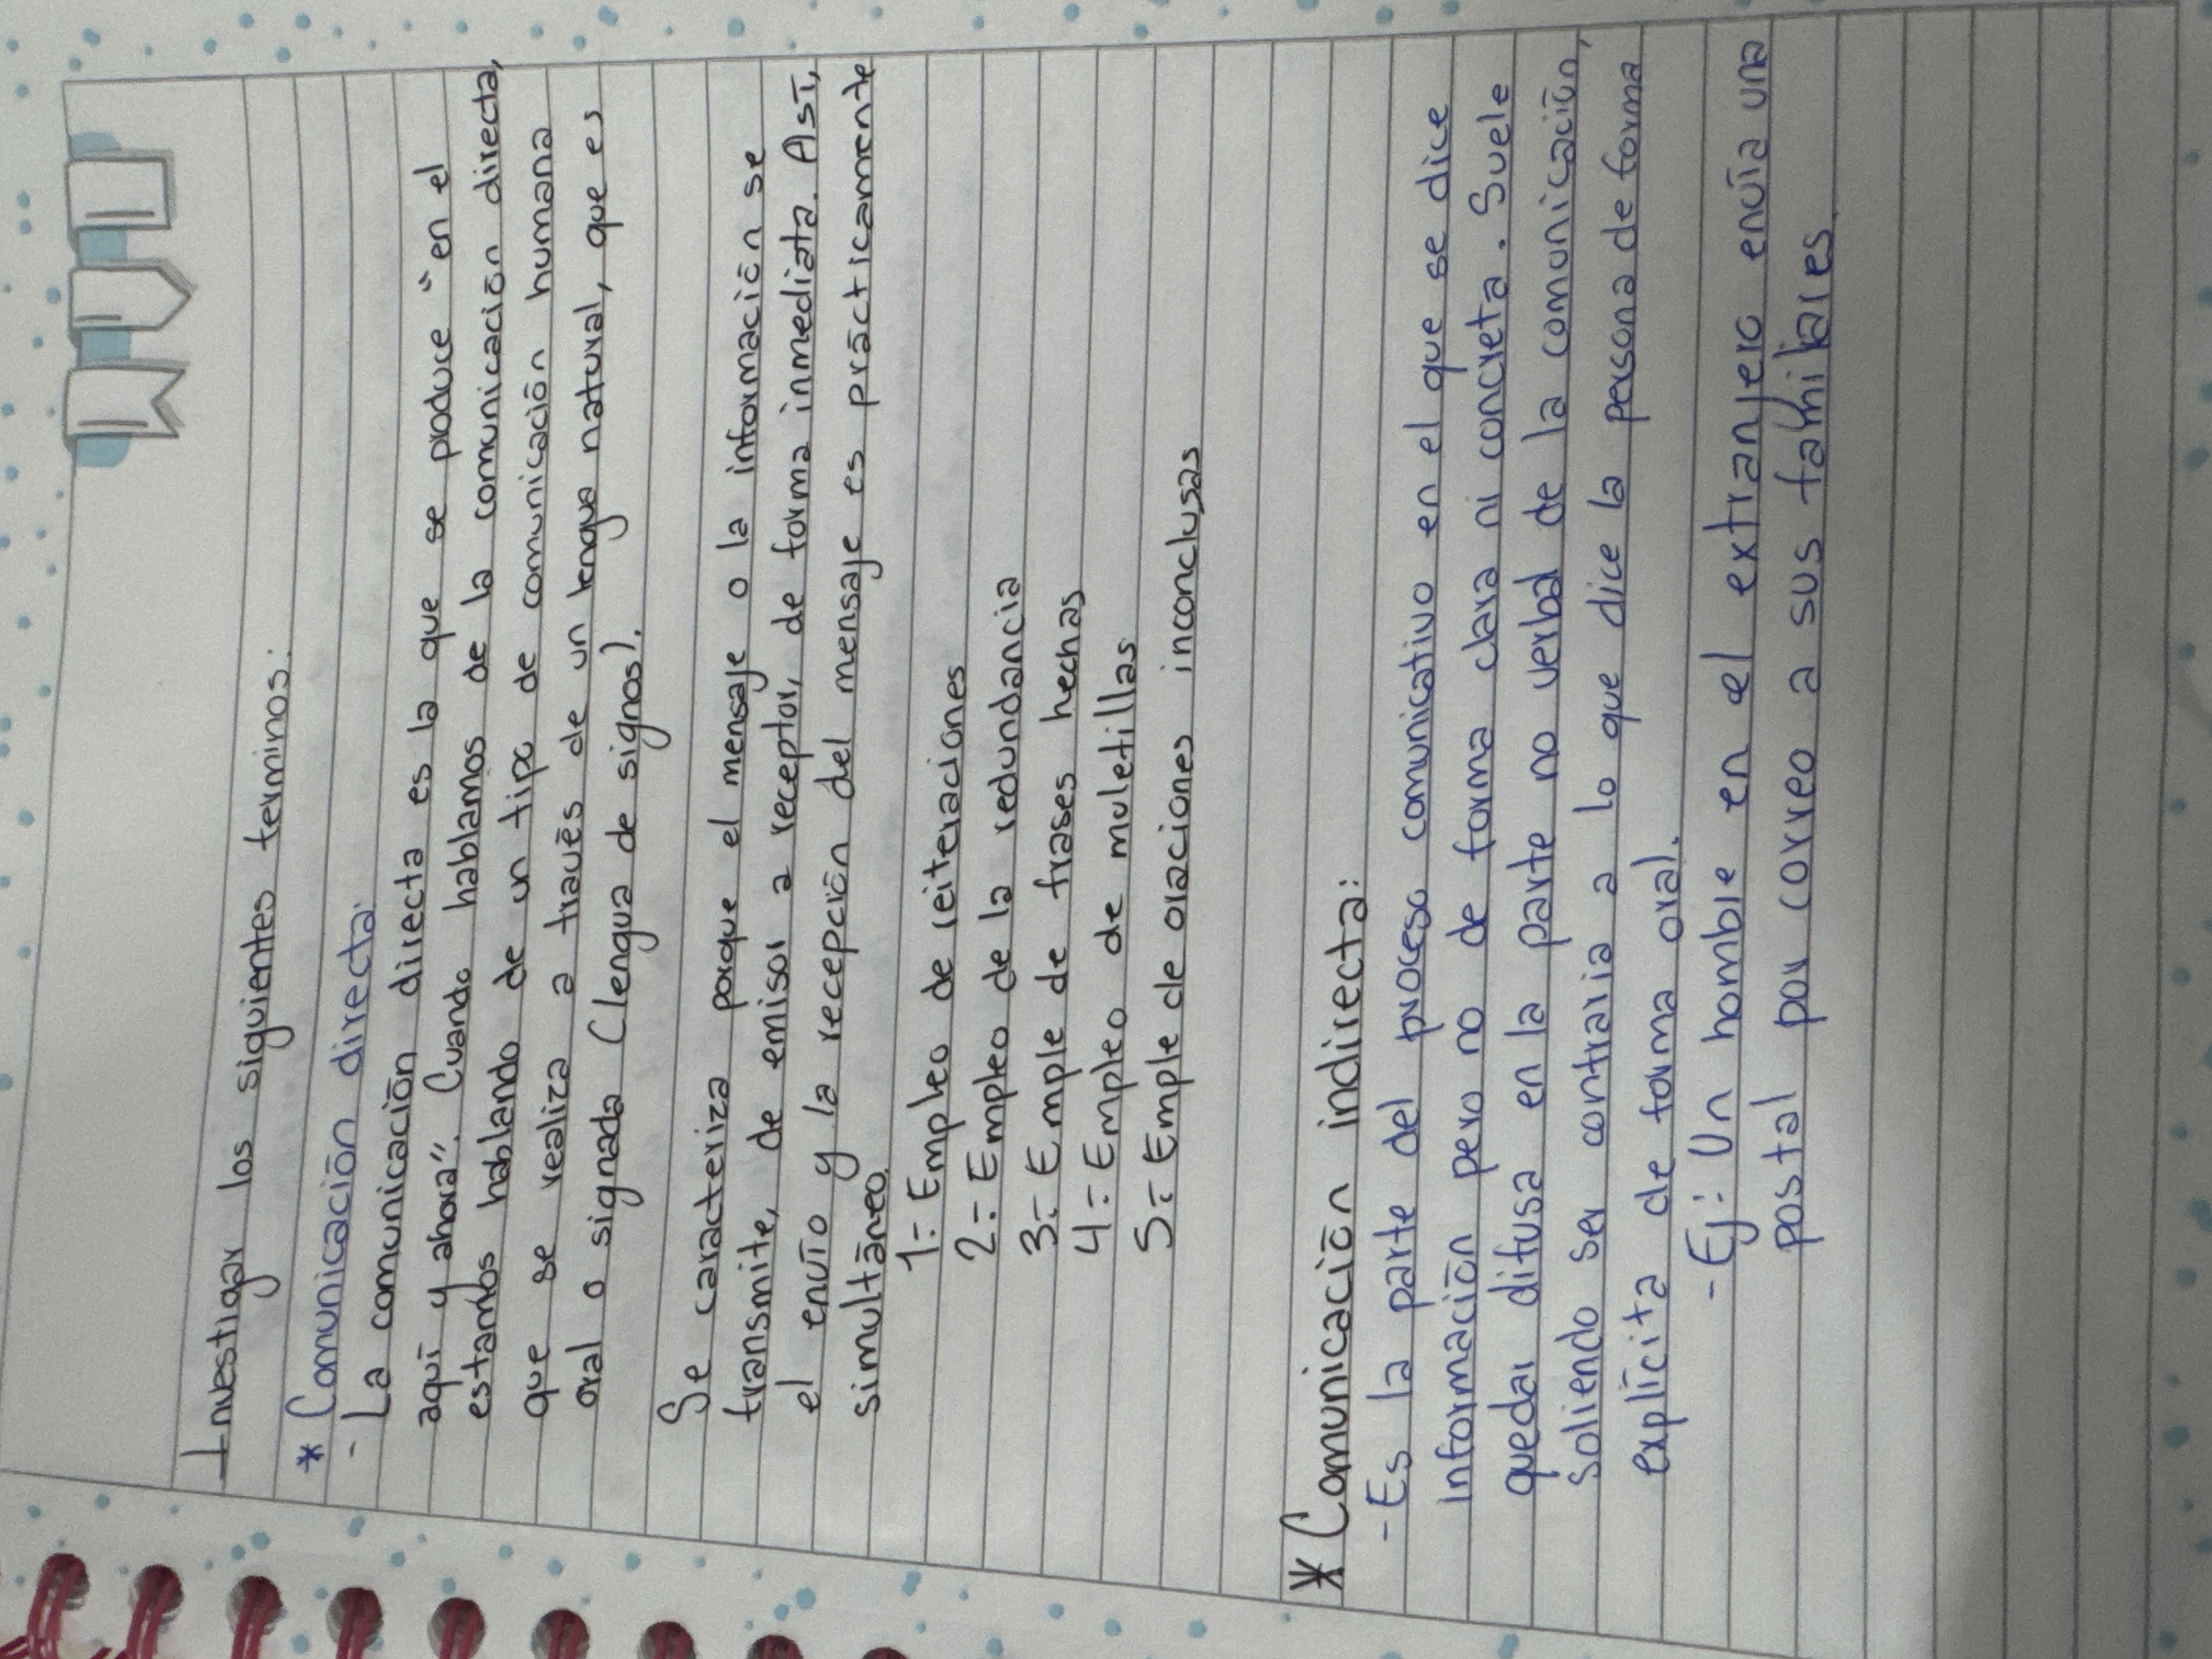 Investigar los siguientes terminos:
* Comunicación directa:
- La comunicación directa es la que se produce "en el
aquí y ahora". Cuando hablamos de la comunicación directa,
estamos hablando de un tipo de comunicación humana
que se realiza a través de un lengua natural, que es
oral o signada (lengua de signos).
Se caracteriza porque el mensaje o la información se
transmite, de emisor a receptor, de forma inmediata. Así,
el envío y la recepción del mensaje es prácticamente
simultáneo.
1.- Empleo de reiteraciones
2.- Empleo de la redundancia
3.- Emple de frases hechas
4.- Empleo de muletillas
5.- Emple de oraciones inconclusas
* Comunicación indirecta:
- Es la parte del proceso comunicativo en el que se dice
información pero no de forma clara ni concreta. Suele
quedar difusa en la parte no verbal de la comunicación,
soliendo ser contraria a lo que dice la persona de forma
explícita de forma oral.
- Ej: Un hombre en el extranjero envía una
postal por correo a sus familiares.